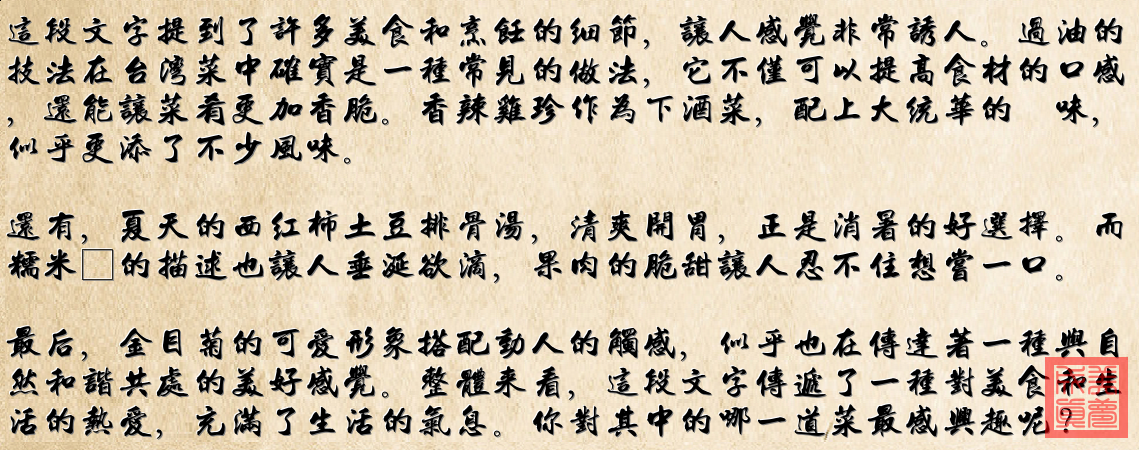 這段文字提到了許多美食和烹飪的細節，讓人感覺非常誘人。過油的
技法在台灣菜中確實是一種常見的做法，它不僅可以提高食材的口感
，還能讓菜肴更加香脆。香辣雞珍作為下酒菜，配上大統華的　味，
似乎更添了不少風味。
還有，夏天的西紅柿土豆排骨湯，清爽開胃，正是消署的好選擇。而
糯米□的描述也讓人垂涎欲滴，果肉的脆甜讓人忍不住想嘗一口。
最后，金目菊的可愛形象搭配動人的觸感，似乎也在傳達著一種與自
然和諧共處的美好感覺。整體來看，這段文字傳遞了一種對美食和生
活的熱愛，充滿了生活的氣息。你對其中的哪一道菜最感興趣呢？